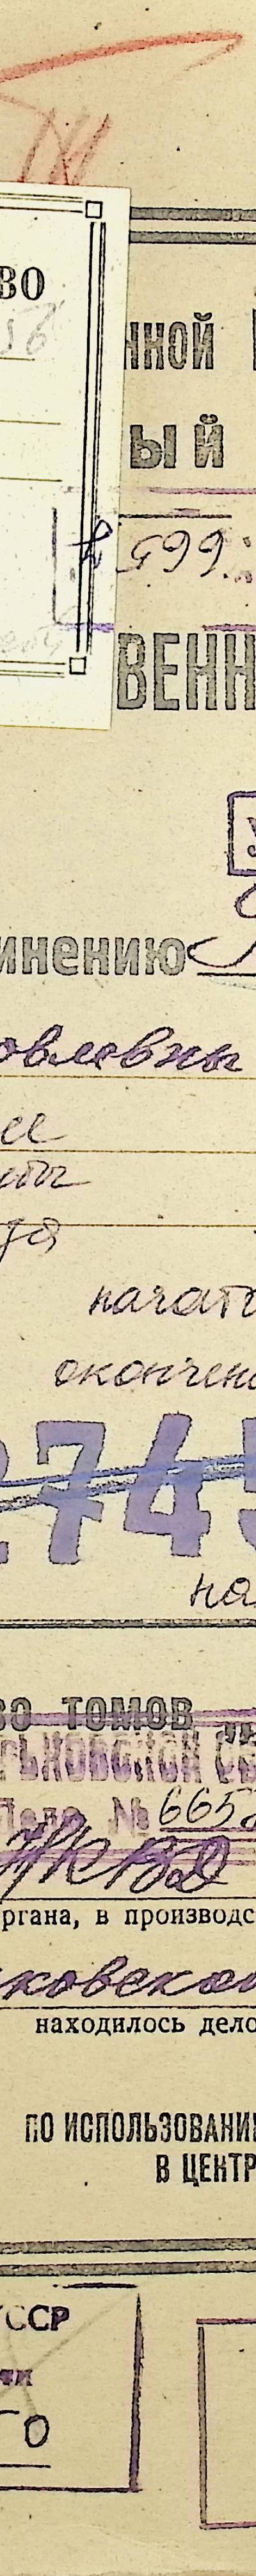 ВО
56
ННОЙ
ЫЙ
665
ВЕНН
У
инению
овлевны
ее
да
начато
окончено
2745
на
ВО ТОМОВ
РЬКОВСКОЙ
Дело № 6658
НКВД
ргана, в производс
ьковской
находилось дело
ПО ИСПОЛЬЗОВАНИ
В ЦЕНТР
ССР
О